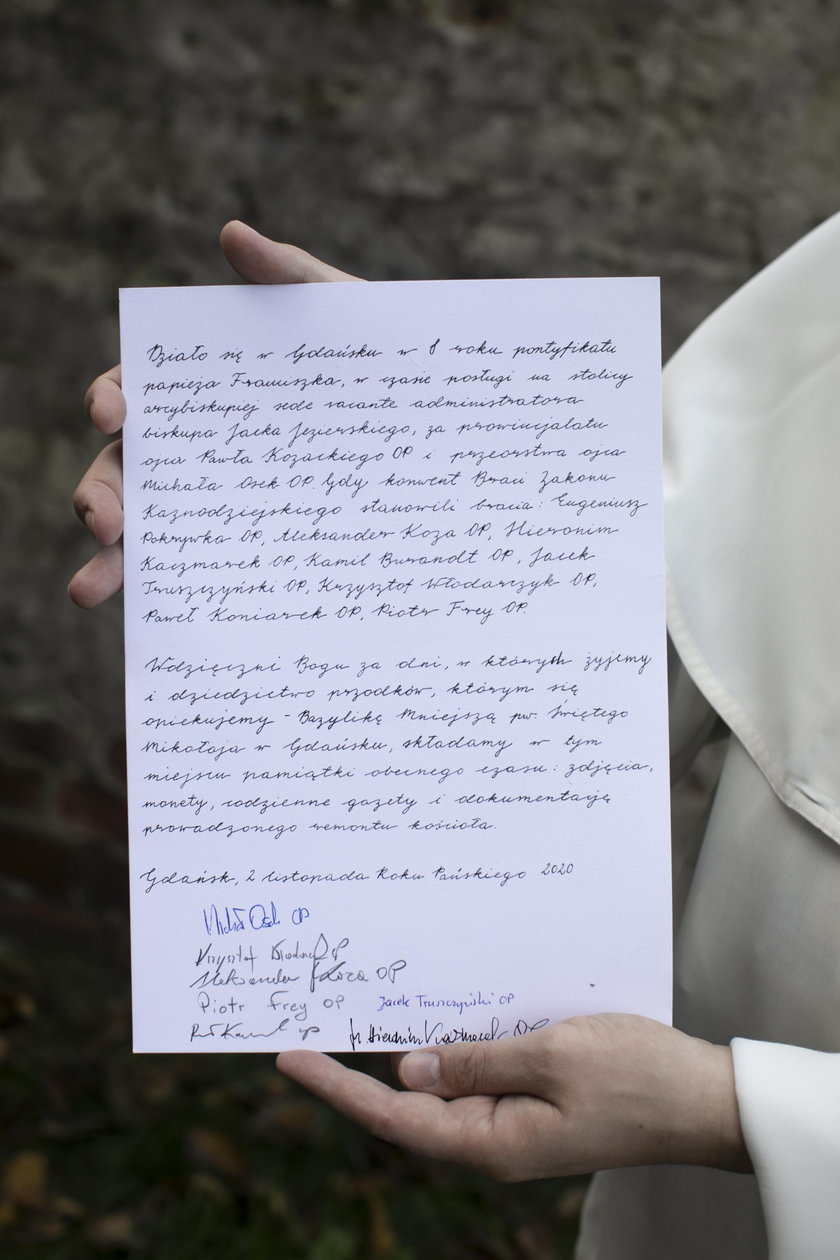 Działo się w Gdańsku w 8 roku pontyfikatu
papieża Franciszka, w czasie posługi na stolicy
arcybiskupiej sede vacante administratora
biskupa Jacka Jezierskiego, za prowincjalatu
ojca Pawła Kozackiego OP i przeorstwa ojca
Michała Osek OP. Gdy konwent Braci Zakonu
Kaznodziejskiego stanowili bracia: Eugeniusz
Pokrywka OP, Aleksander Koza OP, Hieronim
Kaczmarek OP, Kamil Burandt OP, Jacek
Truszczyński OP, Krzysztof Włodarczyk OP,
Paweł Koniarek OP, Piotr Frey OP.
Wdzięczni Bogu za dni, w których żyjemy
i dziedzictwo przodków, którym się
opiekujemy - Bazylikę Mniejszą pw. Świętego
Mikołaja w Gdańsku, składamy w tym
miejscu pamiątki obecnego czasu: zdjęcia,
monety, codzienne gazety i dokumentację
prowadzonego remontu kościoła.
Gdańsk, 2 listopada Roku Pańskiego 2020
Michał Osek OP
Krzysztof OP
Aleksander Koza OP
Piotr Frey OP Jacek Truszczyński OP
fr. Hieronim Kaczmarek OP